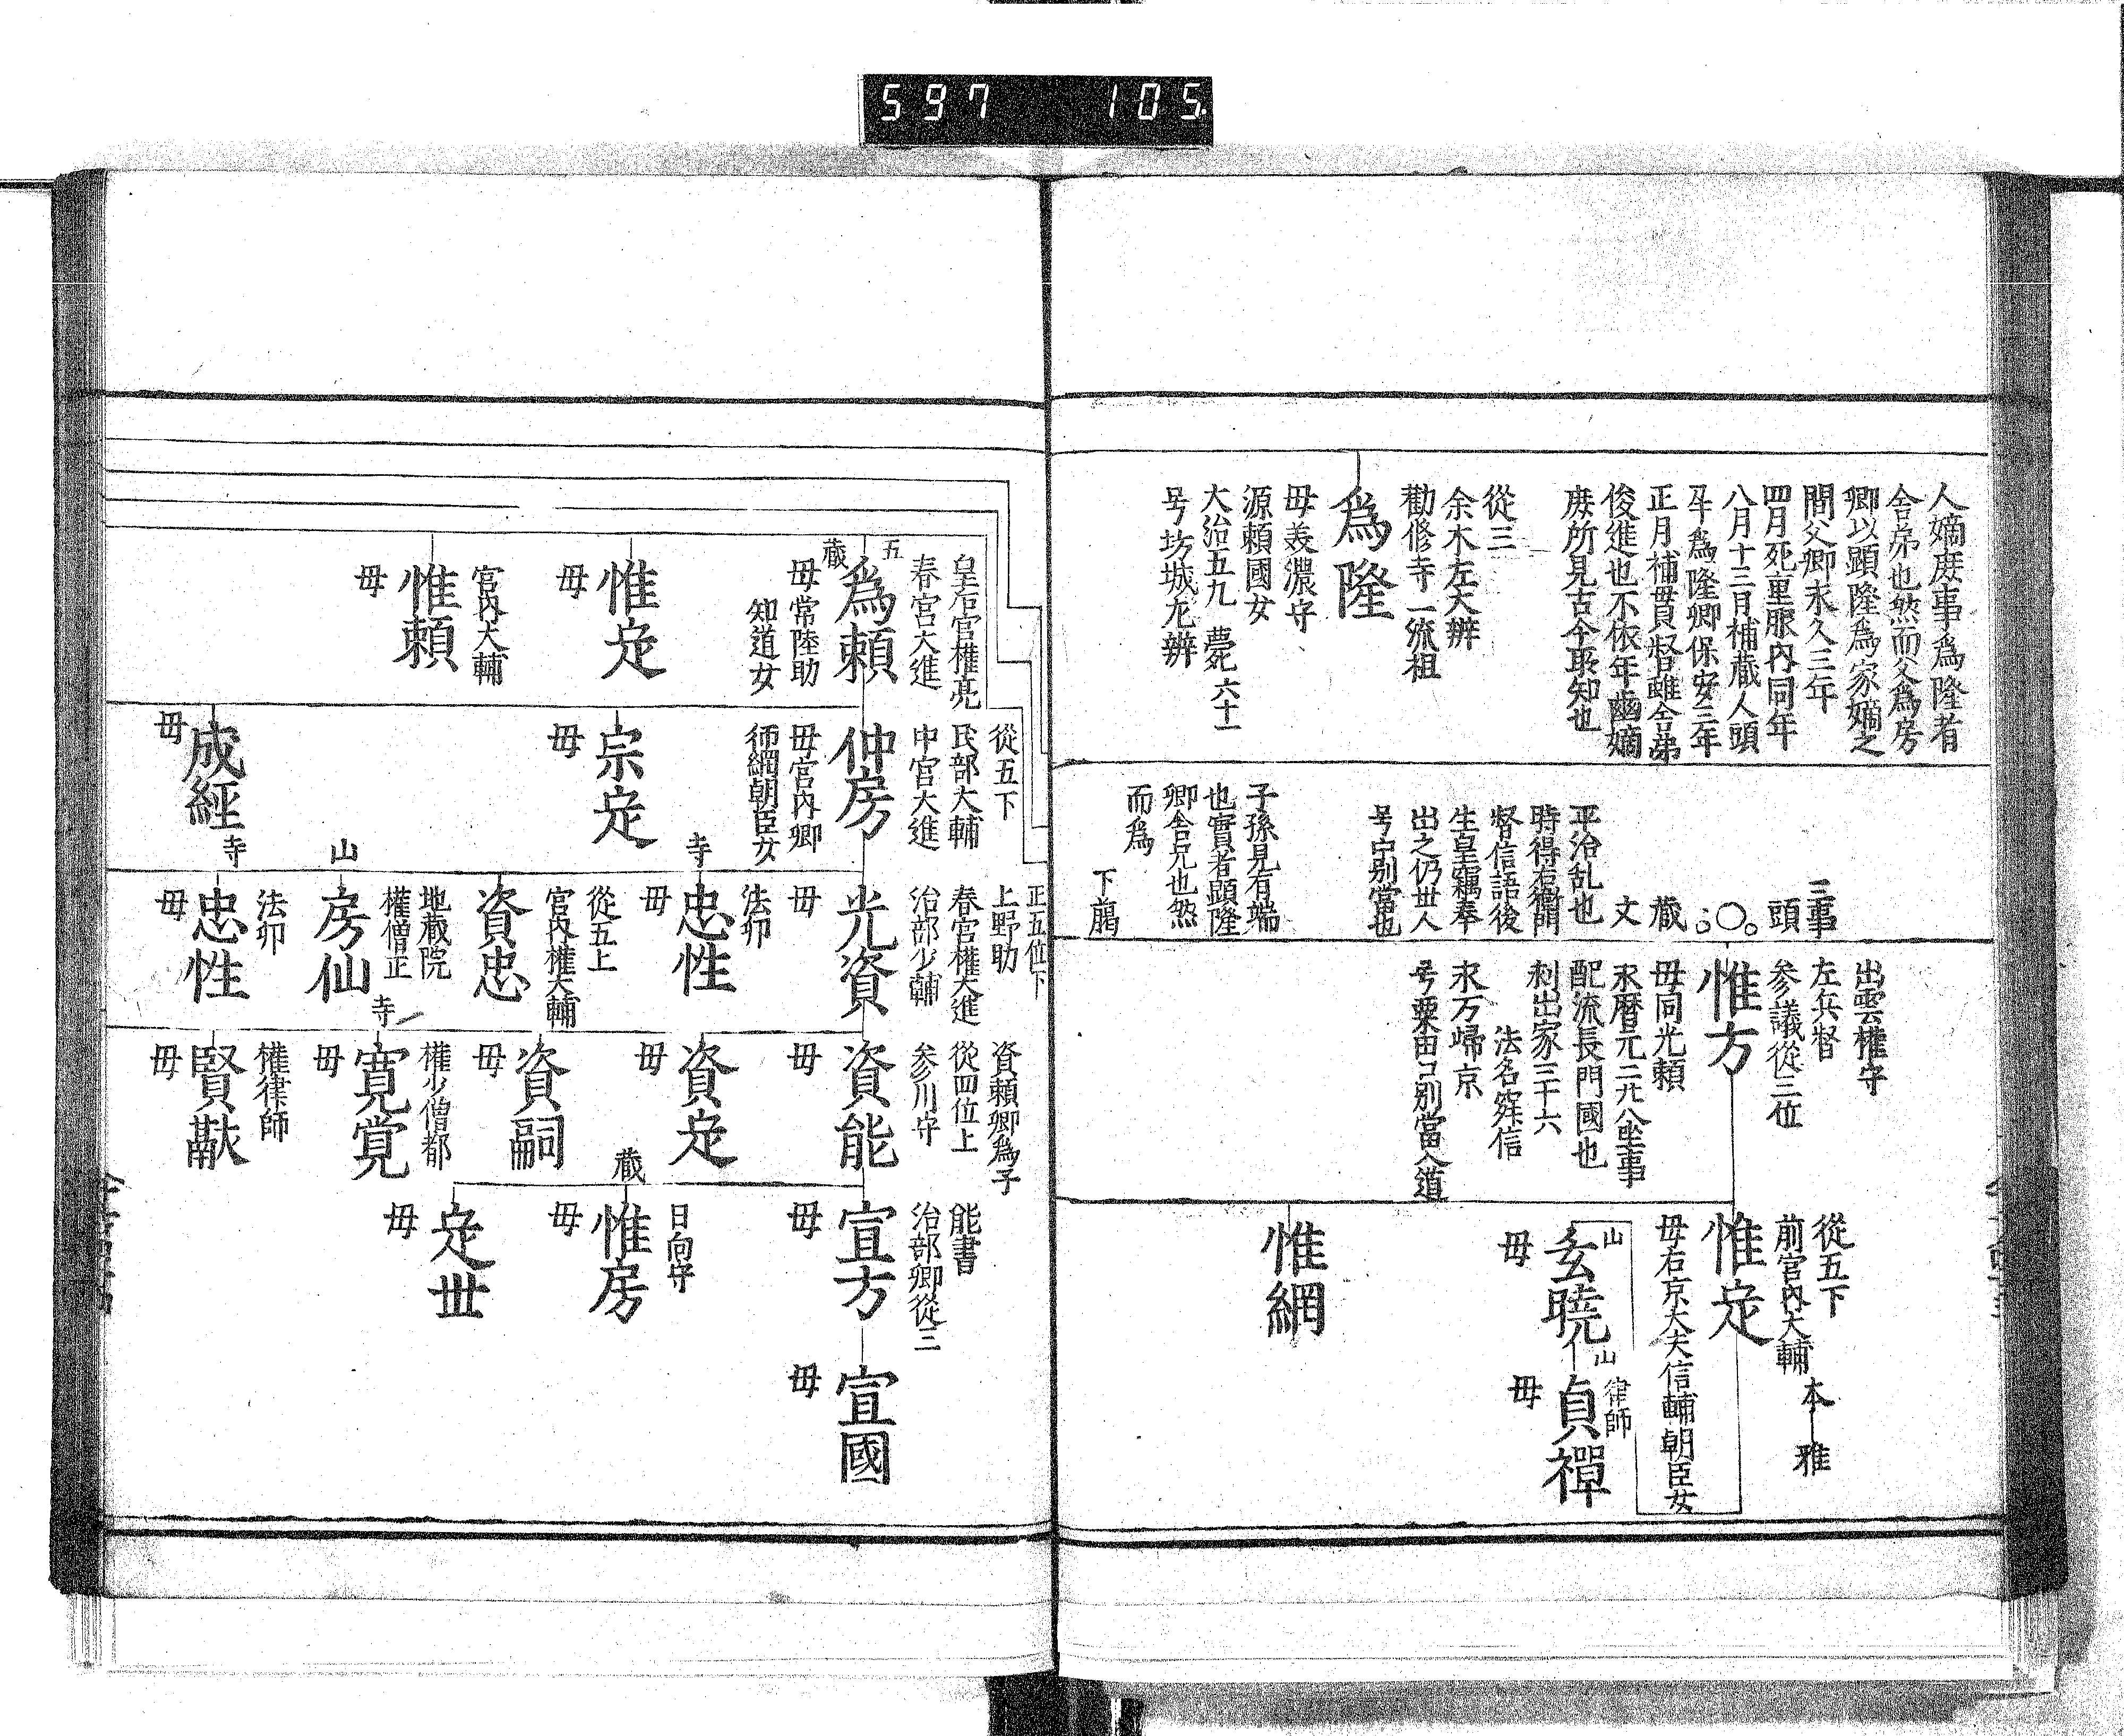 597 105
人嫡庶事爲隆者
舎弟也然而父爲房
卿以顕隆爲家嫡之
間父卿永久三年
四月死重服内同年
八月十三月補蔵人頭
爲隆卿保安三年
正月補貫督雖舎弟
俊進也不依年齒嫡
庶所見古今取知也
從三
余木左大辨
勸修寺一流祖
爲隆
毋美濃守
源頼國女
大治五九 薨六十一
号坊城左辨
三事
頭
蔵
文
平治乱也
時得右衛門
督信語後
生皇竊奉
出之仍世人
号中別當也
子孫見有端
也實者顕隆
卿舎兄也然
而爲
下﨟
出雲權守
左兵督
参議從三位
惟方
毋同光頼
永暦元二廿八坐事
配流長門國也
剃出家三十六
法名寂信
永万帰京
号粟田口別當入道
從五下
前宮内大輔
本
雅
惟㝎
毋右京大夫信輔朝臣女
山
玄暁
毋
山 律師
貞禪
毋
惟網
皇后宮權亮
春宮大進
五
爲頼
蔵
毋常陸助
知道女
惟㝎
毋
宮内大輔
惟頼
毋
從五下
民部大輔
中宮大進
仲房
毋宮内卿
師網朝臣女
宗㝎
毋
成経
毋
正五位下
上野助
春宮權大進
治部少輔
光資
毋
法印
寺
忠性
毋
從五上
宮内權大輔
資忠
地蔵院
權僧正
山
房仙
法印
寺
忠性
毋
資頼卿爲子
從四位上
参川守
資能
毋
資㝎
毋
資嗣
毋
權少僧都
寺
寛覚
毋
權律師
賢猷
毋
能書
治部卿從三
宣方
毋
宣國
毋
日向守
蔵
惟房
毋
㝎世
毋